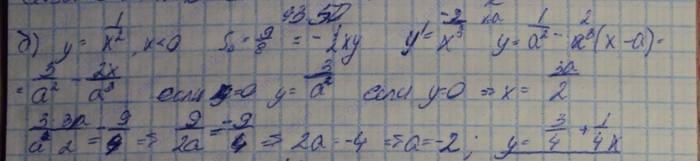 43.50
б) y = 1/x², x<0 S₀ = 9/8 = -1/2xy y' = -2/x³ y = 1/a² - 2/a³(x-a) =
= 3/a² - 2x/a³ если y=0 y = 3/a² если y=0 ⇒ x = 3a/2
3·3a/a²2 = -9/4 ⇒ 9/2a = -9/4 ⇒ 2a = -4 ⇒ a = -2; y = 3/4 + 1/4x